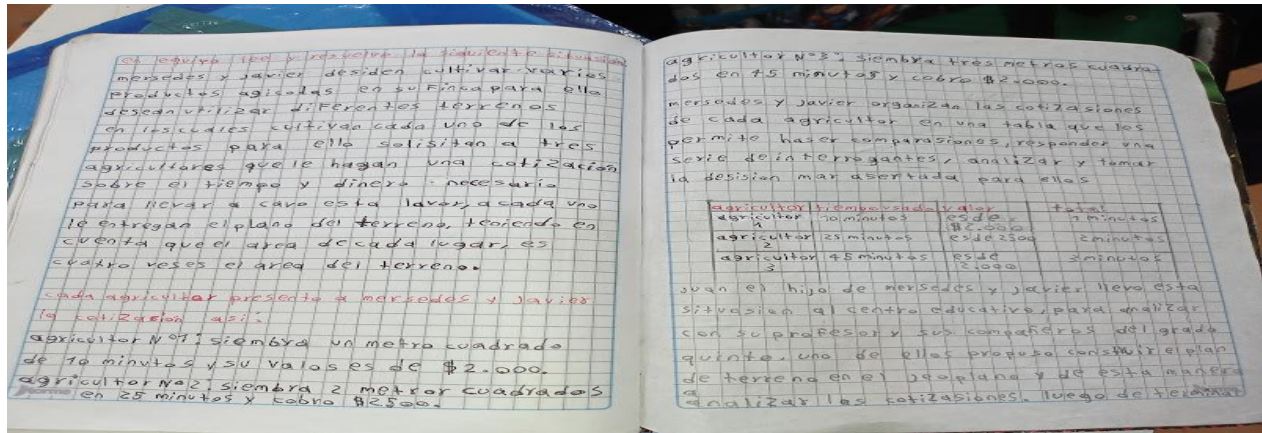 en equipo lee y resuelvo la siguiente situasion
mersedes y Javier desiden cultivar varios
productos agicolas en su Finca para ello
desean utilizar diferentes terrenos
en los cuales cultivan cada uno de los
productos para ello solisitan a tres
agricultores que le hagan una cotizacion
sobre el tiempo y dinero necesario
para llevar a cavo esta lavor, a cada uno
le entregan el plano del terreno, teniendo en
cuenta que el area de cada lugar, es
cuatro veses el area del terreno.
cada agricultor presento a mersedes y Javier
la cotizasion asi:
agricultor Nº1: siembra un metro cuadrado
de 10 minutos y su valos es de $2.000.
agricultor Nº2: siembra 2 metror cuadrados
en 25 minutos y cobro $2500.
agricultor Nº3: siembra tres metros cuadra-
dos en 45 minutos y cobro $2.000.
mersedes y Javier organizan las cotizasiones
de cada agricultor en una tabla que les
permite haser comparasiones, responder una
serie de interrogantes, analizar y tomar
la desision mar asertada para ellos
agricultor tiempo usado valor total
agricultor 1 10 minutos es de $2.000 1 minutos
agricultor 2 25 minutos es de 2500 2 minutos
agricultor 3 45 minutos es de 2.000 3 minutos
Juan el hijo de mersedes y Javier llevo esta
situasion al centro educativo, para analizar
con su profesor y sus compañeros del grado
quinto, uno de ellos propuso construir el plan
de terreno en el geoplano y de esta manera
analizar las cotizasiones. luego de terminar